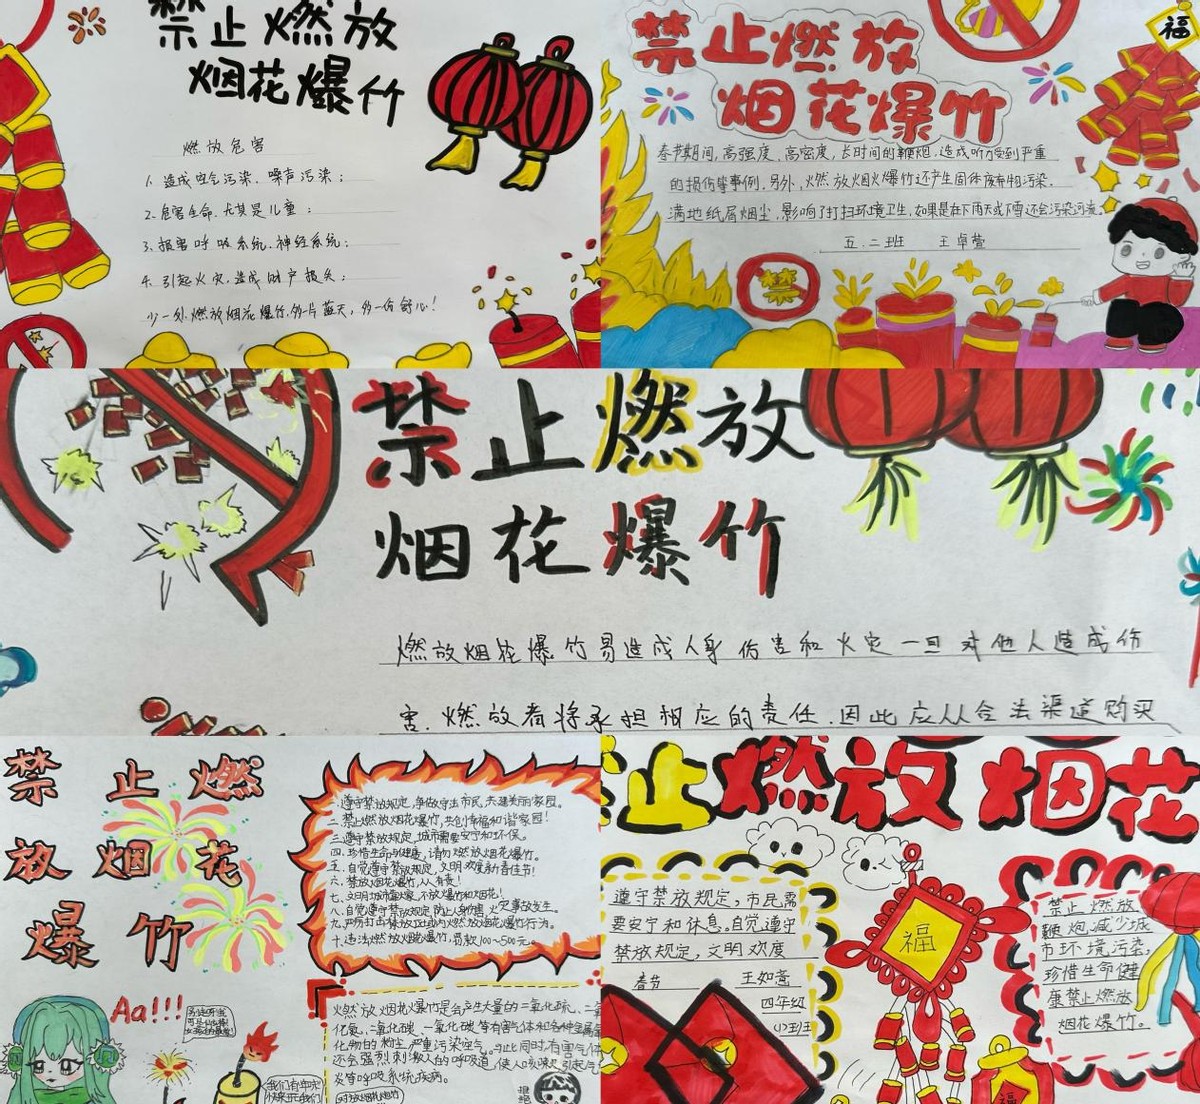 禁止燃放
烟花爆竹
燃放危害
1. 造成空气污染、噪声污染；
2. 危害生命、尤其是儿童；
3. 损害呼吸系统、神经系统；
4. 引起火灾、造成财产损失；
少一处燃放烟花爆竹，多一片蓝天，多一份舒心！
禁止燃放
烟花爆竹
福
春节期间，高强度、高密度，长时间的鞭炮，造成听力受到严重
的损伤等事例，另外，燃放烟火爆竹还产生固体废弃物污染，
满地纸屑烟尘，影响了打扫环境卫生，如果是在下雨天或下雪还会污染河流。
五.二班 王卓萱
禁
禁止燃放
烟花爆竹
燃放烟花爆竹易造成人身伤害和火灾一旦对他人造成伤
害，燃放者将承担相应的责任，因此应从合法渠道购买
禁止燃
放烟花
爆竹
Aa!!!
一.遵守禁放规定，争做守法市民，共建美丽家园。
二.禁止燃放烟花爆竹，共创幸福和谐家园！
三.遵守禁放规定，城市需要安宁和环保。
四.珍惜生命与健康，请勿燃放烟花爆竹。
五.自觉遵守禁放规定，文明欢度新春佳节！
六.禁放烟花爆竹，人人有责！
七.文明城市靠大家，不放爆竹和烟花！
八.自觉遵守禁放规定，防止人身伤害，火灾事故发生。
九.严厉打击禁放区域内燃放烟花爆竹行为。
十.违法燃放烟花爆竹，罚款100～500元。
燃放烟花爆竹是会产生大量的二氧化硫、二氧
化氮、二氧化碳、一氧化碳等有害气体和各种金属氧
化物的粉尘，严重污染空气。与此同时，有害气体
还会强烈刺激人的呼吸道，使人咳嗽，引起气
发等呼吸系统疾病。
我们有
止燃放烟花
遵守禁放规定，市民需
要安宁和休息。自觉遵守
禁放规定，文明欢度
春节 王如意
四年级
(1)班
福
禁止燃放
鞭炮，减少城
市环境污染，
珍惜生命健
康禁止燃放
烟花爆竹。
福